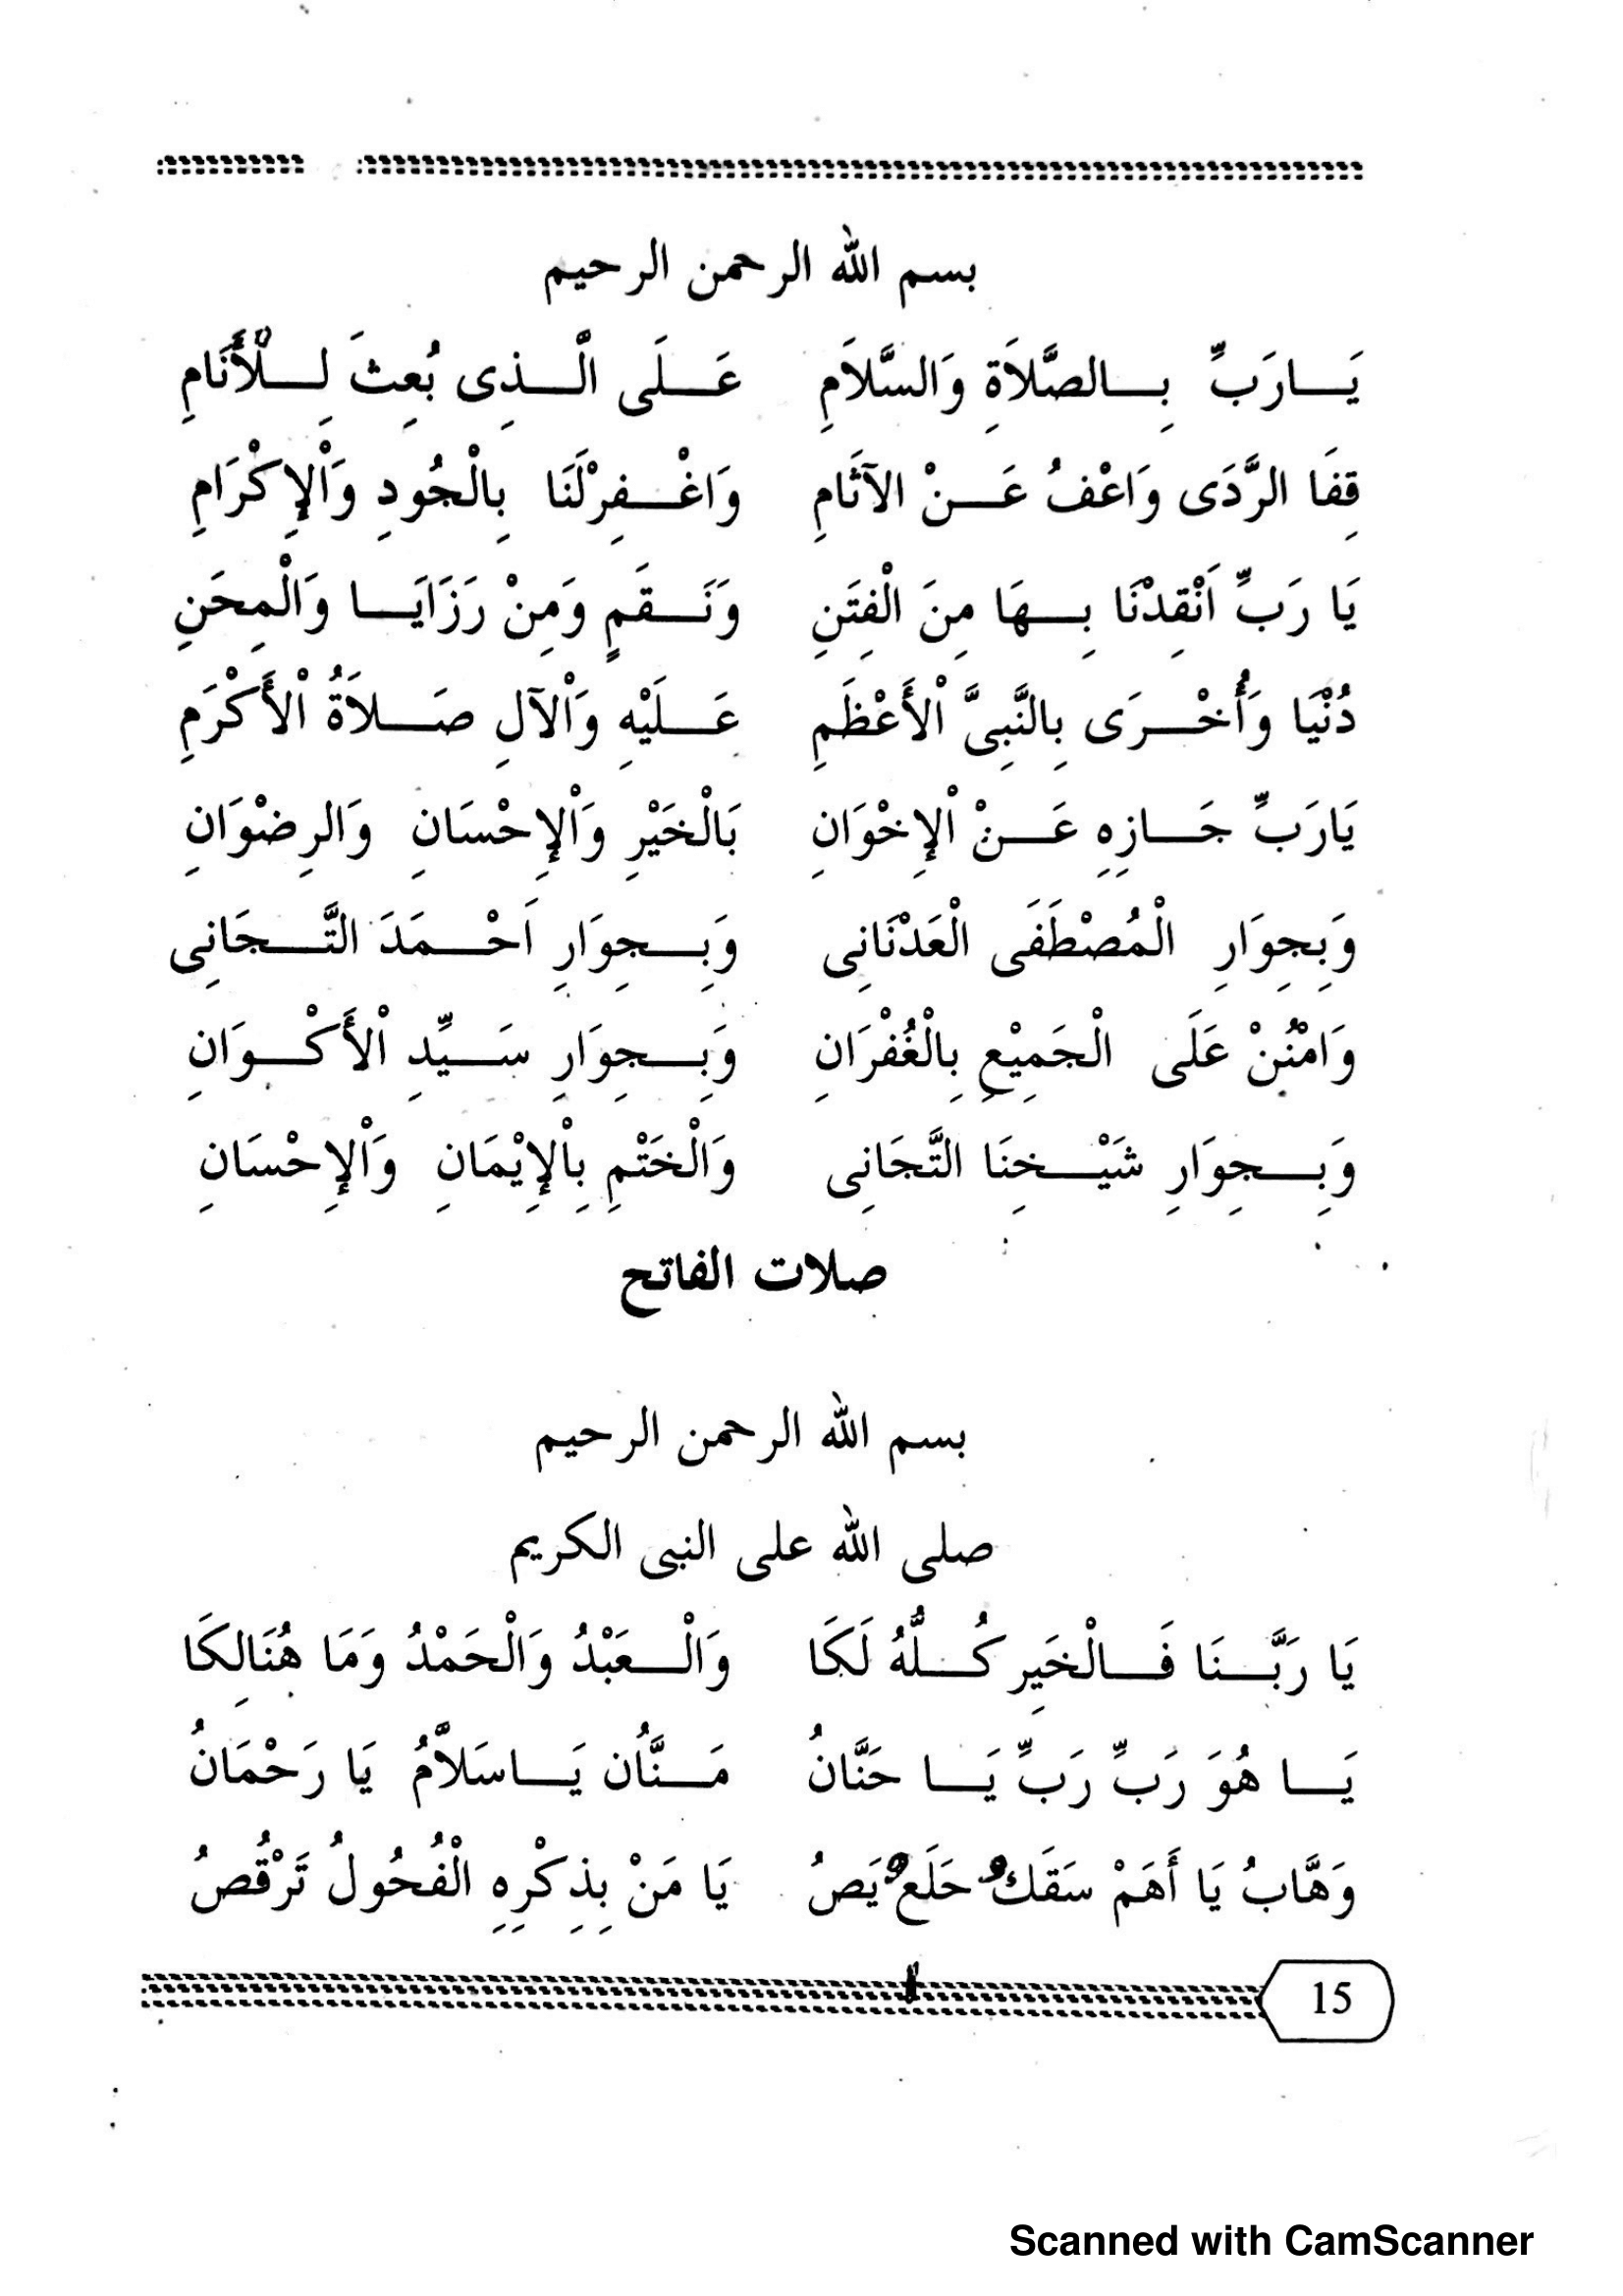 بسم الله الرحمن الرحيم
يَــارَبِّ بِــالصَّلاَةِ وَالسَّلاَمِ عَــلَى الَّــذِى بُعِثَ لِــلْأَنَامِ
قِفَا الرَّدَى وَاعْفُ عَــنْ الآثَامِ وَاغْــفِرْلَنَا بِالْجُودِ وَاْلإِكْرَامِ
يَا رَبِّ اَنْقِدْنَا بِــهَا مِنَ الْفِتَنِ وَنَــقَمٍ وَمِنْ رَزَايَــا وَالْمِحَنِ
دُنْيَا وَأُخْــرَى بِالنَّبِىَّ اْلأَعْظَمِ عَــلَيْهِ وَاْلآلِ صَــلاَةُ اْلأَكْرَمِ
يَارَبِّ جَــازِهِ عَــنْ اْلإِخْوَانِ بَالْخَيْرِ وَاْلإِحْسَانِ وَالرِضْوَانِ
وَبِجِوَارِ الْمُصْطَفَى الْعَدْنَانِى وَبِــجِوَارِ اَحْــمَدَ التَّــجَانِى
وَامْنُنْ عَلَى الْجَمِيْعِ بِالْغُفْرَانِ وَبِــجِوَارِ سَــيِّدِ اْلأَكْــوَانِ
وَبِــجِوَارِ شَيْــخِنَا التَّجَانِى وَالْخَتْمِ بِاْلإِيْمَانِ وَاْلإِحْسَانِ
صلات الفاتح
بسم الله الرحمن الرحيم
صلى الله على النبى الكريم
يَا رَبَّــنَا فَــالْخَيِر كُــلُّهُ لَكَا وَالْــعَبْدُ وَالْحَمْدُ وَمَا هُنَالِكَا
يَــا هُوَ رَبِّ رَبِّ يَــا حَنَّانُ مَــنَّاُن يَــاسَلاَّمُ يَا رَحْمَانُ
وَهَّابُ يَا أَهَمْ سَقَكٌ حَلَعٌ يَصُ يَا مَنْ بِذِكْرِهِ الْفُحُولُ تَرْقُصُ
15
Scanned with CamScanner